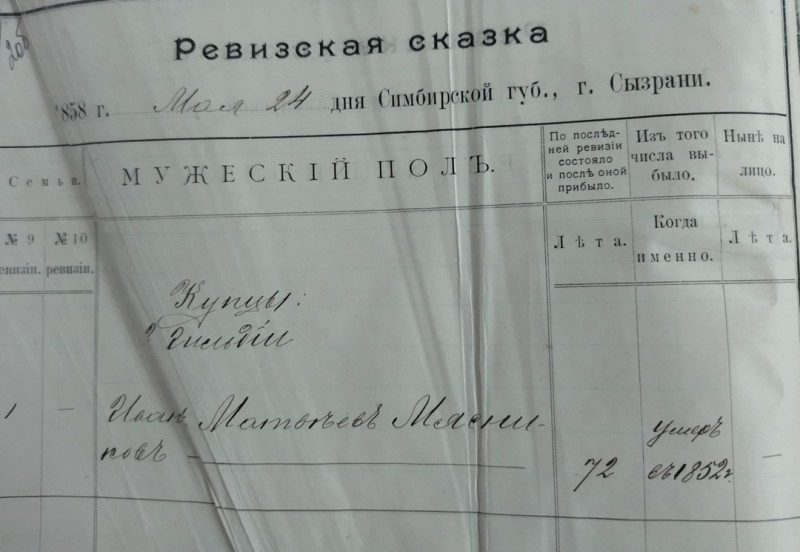 208
Ревизская сказка
1858 г. Мая 24 дня Симбирской губ., г. Сызрани.
Семьи.
МУЖЕСКІЙ ПОЛЪ.
По послѣд-
ней ревизіи
состояло
и послѣ оной
прибыло.
Изъ того
числа вы-
было.
Нынѣ на
лицо.
№ 9
ревизіи.
№ 10
ревизіи.
Лѣта.
Когда
именно.
Лѣта.
Купцы:
Гильдіи
1 — Иванъ Матвѣевъ Мясни-
ковъ — 72
умеръ
въ 1852 г.
—